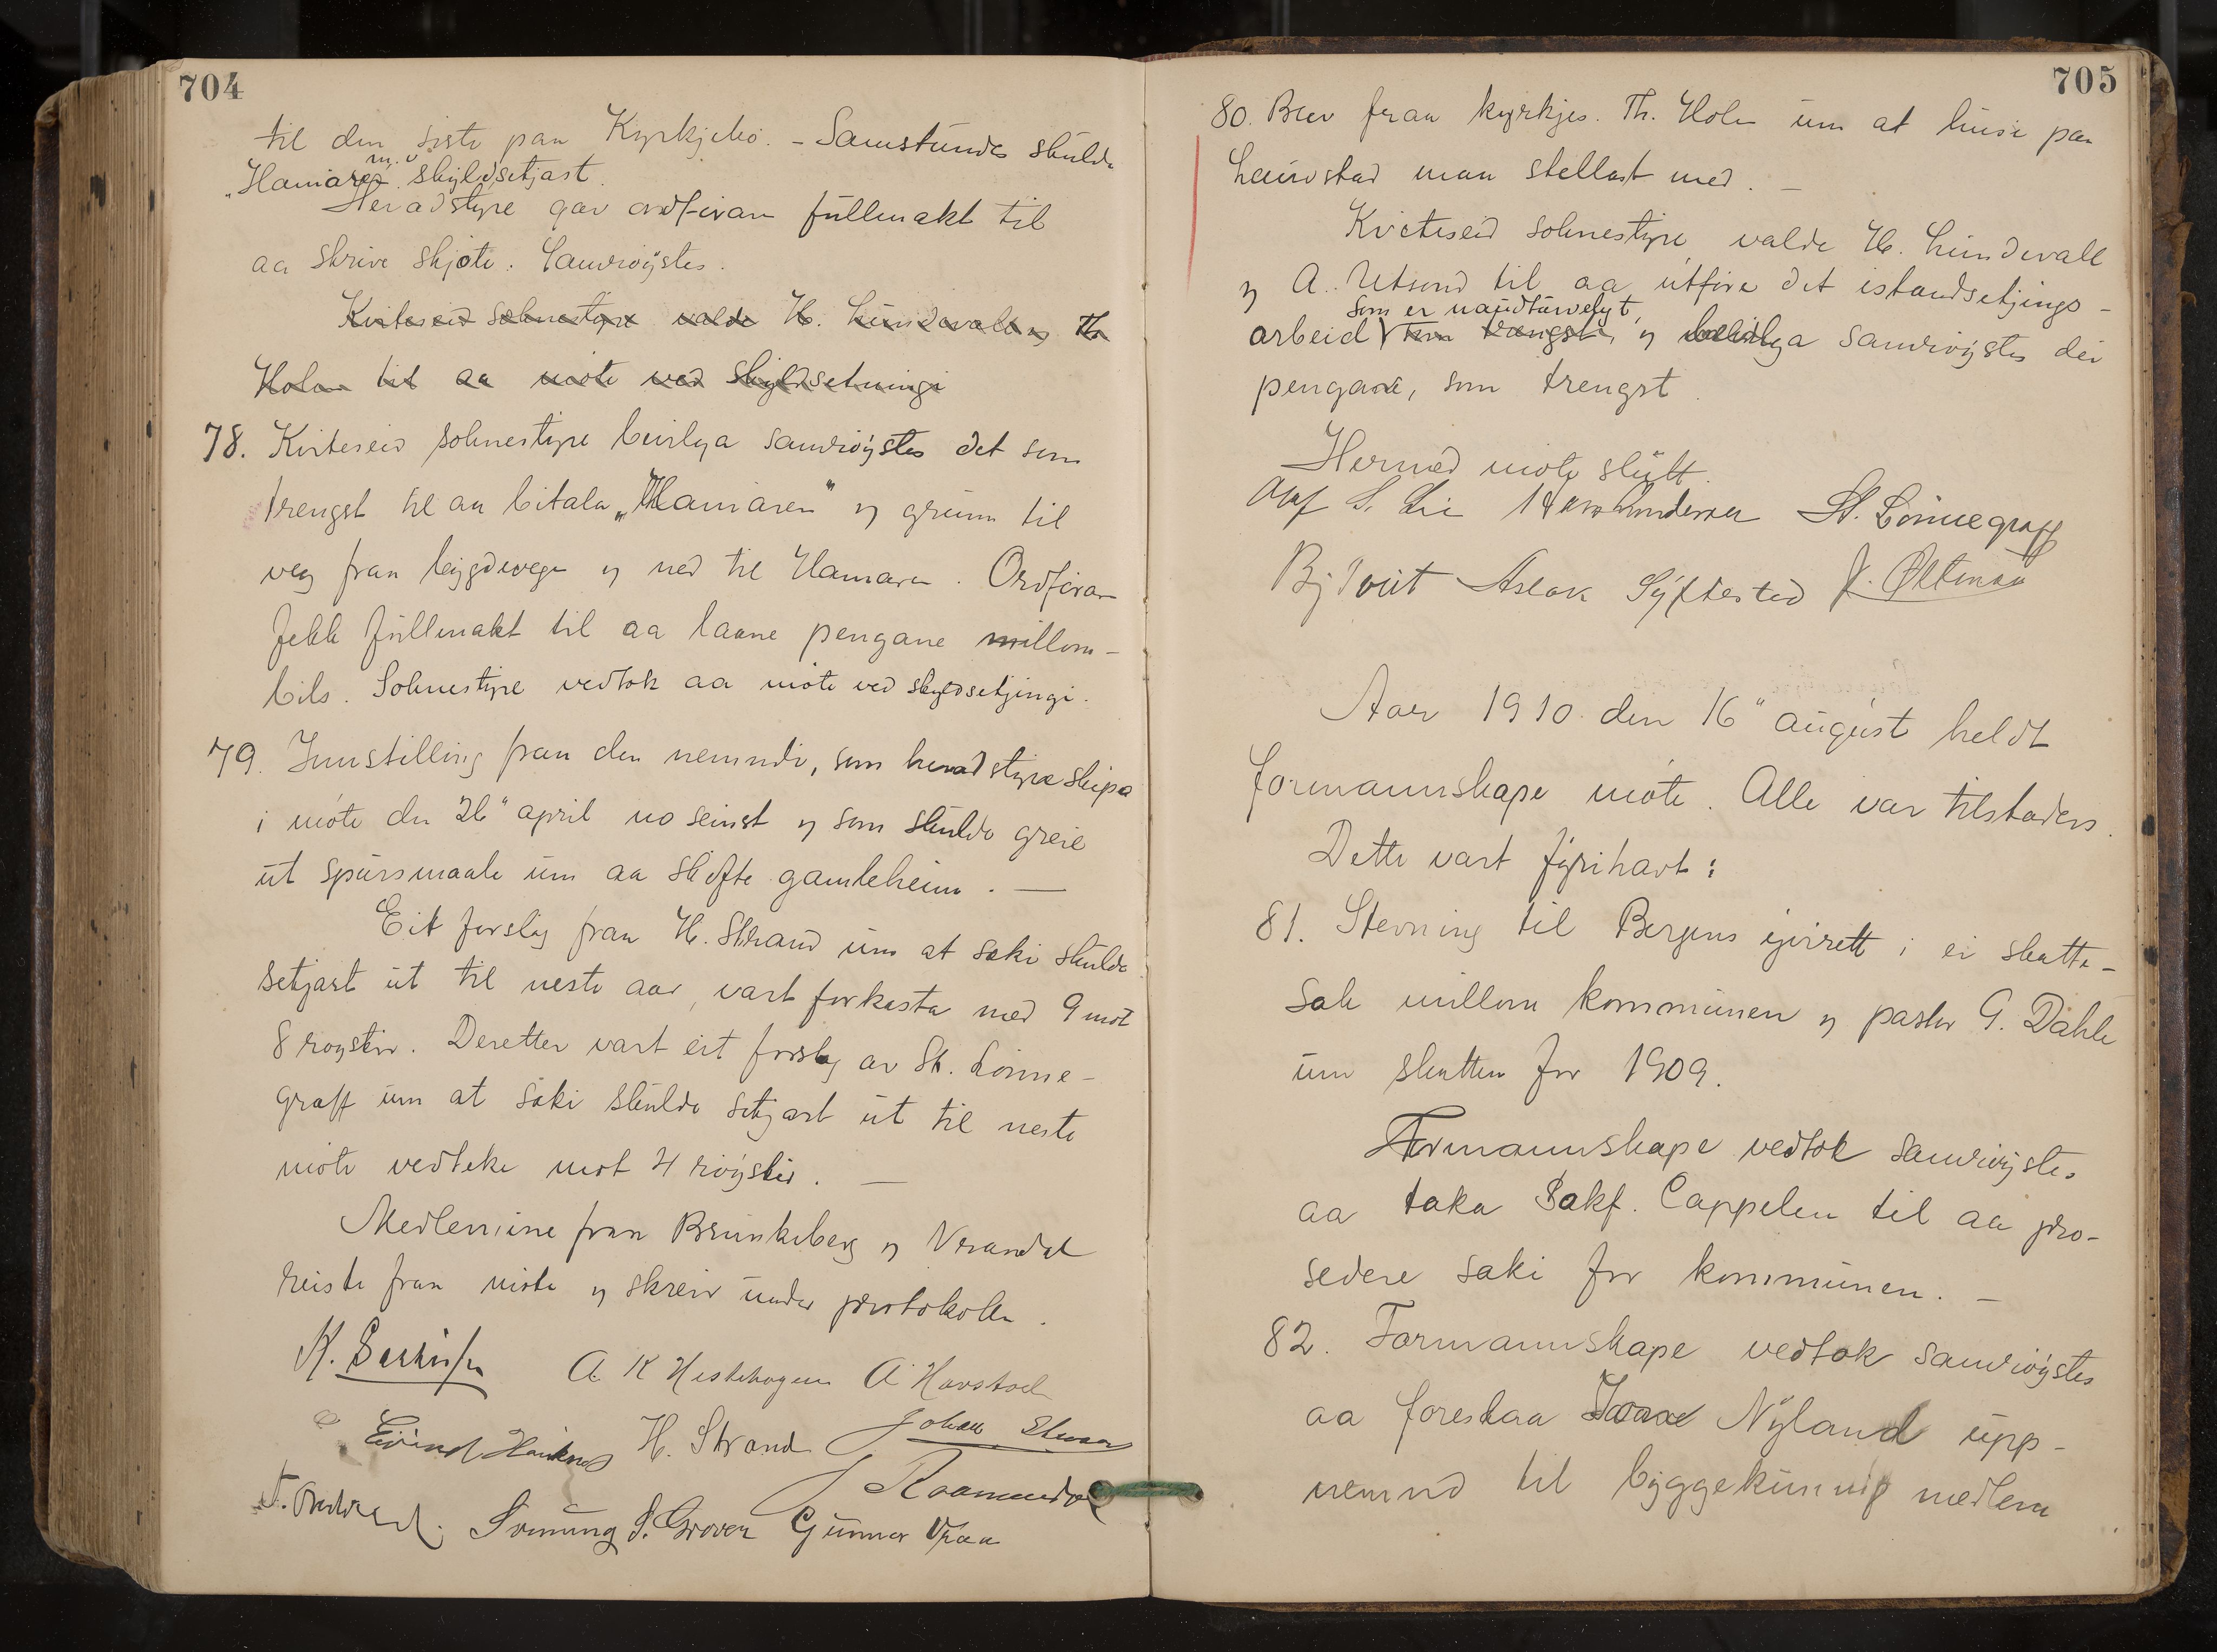 704
til den siste paa Kyrkjebø. - Samstundes skulde
m.v.
"Hamaren skyldsetjast.
Heradstyre gav ordførar fullmakt til
aa skrive skjøte. Samrøystes.
Kviteseid soknestyre valde H. Lundevall og Th
Holen til aa møte ved skyldsetningi
78. Kviteseid soknestyre løivlga samrøystes det som
trengst til aa bitala "Hamaren" og grunn til
veg fraa bygdevegen og ned til Hamaren. Ordførar
fekk fullmakt til aa laane pengane millom-
bils. Soknestyre vedtok aa møte ved skyldsetjingi.
79. Innstilling fraa den nemndi, som heradstyre skipa
i møte den 26" april no seinst og som skulde greie
ut spursmaale um aa skifte gamleheim. —
Eit forslag fraa H. Strand um at saki skulde
setjast ut til neste aar, vart forkasta med 9 mot
8 røyster. Deretter vart eit forslag av St. Lønne-
graff um at saki skulde setjast ut til neste
møte vedteke mot 4 røyster. —
Medlemine fraa Brunkeberg og Vraadal
reiste fraa møte og skreiv under protokolen.
A K Hestehagen A Havstad
Eivind H. Strand Johan
Raamunddal
Sveinung S. Groven Gunnar Vraa
705
80. Brev fraa kyrkjes. Th. Holen um at huse paa
Laurostad maa stellast med. —
Kviteseid soknestyre valde H. Lundevall
og A. Utsond til aa utføre det istandsetjings-
som er naudturvelegt,
arbeid som trengst, og løivlga samrøystes dei
pengane, som trengst.
Hermed møte slutt.
Olaf S. Lie H Lundevall St. Lønnegraff
Bj Tveit Aslak Syftestad J. Oltman
Aar 1910 den 16" august heldt
formannskape møte. Alle var tilstades.
Dette vart fyrihavt:
81. Stevning til Bergens yvirrett i ei skatte-
sak millom kommunen og pastor G. Dahle
um skatten for 1909.
Formannskape vedtok samrøystes
aa taka Sakf. Cappelen til aa pro-
sedere saki for kommunen. —
82. Formannskape vedtok samrøystes
aa foreslaa Nyland upp-
nemnd til byggekunnig medlem